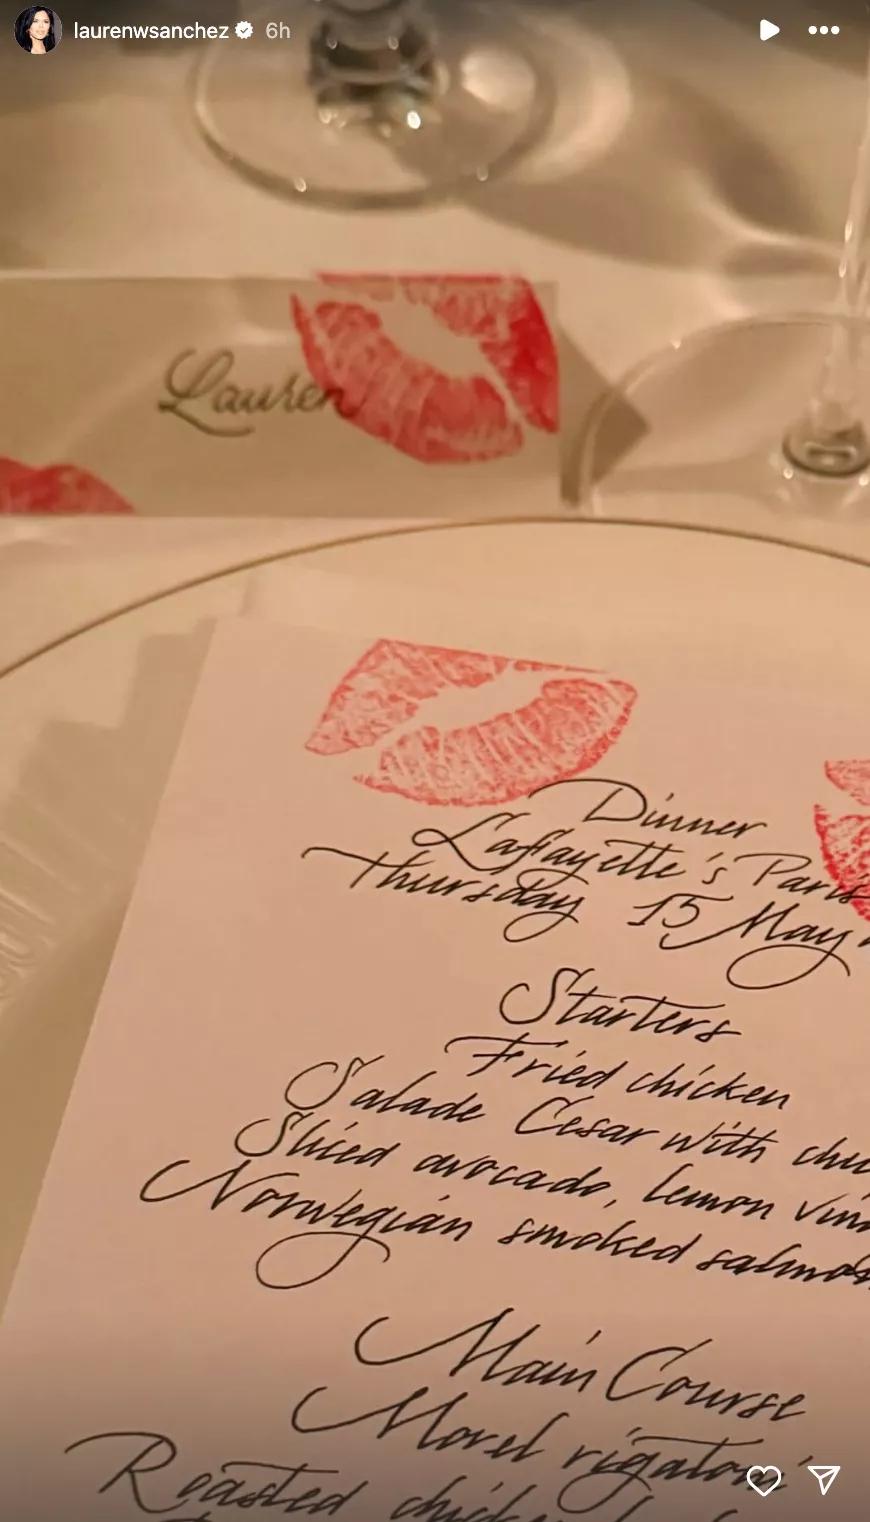 laurenwsanchez 6h
Lauren
Dinner
Lafayette's Paris
Thursday 15 May
Starters
Fried chicken
Salade Cesar with
Sliced avocado, lemon
Norwegian smoked salmon
Main Course
Morel rigatoni
Roasted